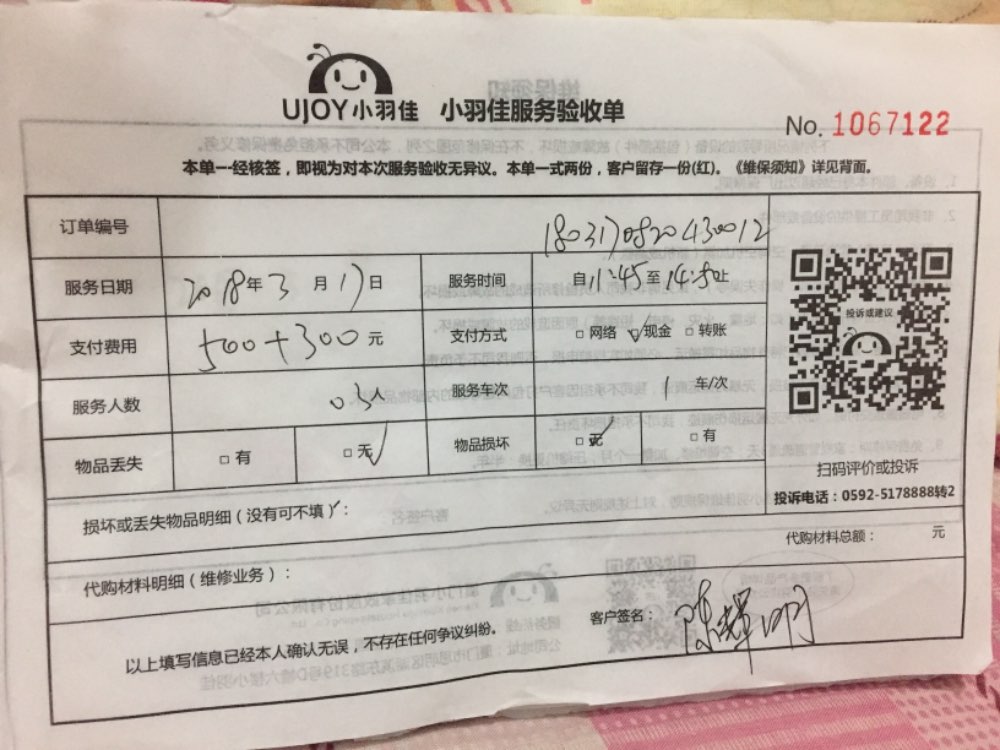 UJOY小羽佳 小羽佳服务验收单
No. 1067122
本单一经核签，即视为对本次服务验收无异议。本单一式两份，客户留存一份(红)。《维保须知》详见背面。
订单编号 1803170820430012
服务日期 2018年3月17日 服务时间 自11:45至14:50止
支付费用 500+300元 支付方式 □网络 ☑现金 □转账
投诉或建议
服务人数 03 服务车次 1 车/次
物品丢失 □有 ☑无 物品损坏 ☑无 □有
扫码评价或投诉
投诉电话：0592-5178888转2
损坏或丢失物品明细（没有可不填）：
代购材料总额： 元
代购材料明细（维修业务）：
客户签名：陈辉明
以上填写信息已经本人确认无误，不存在任何争议纠纷。